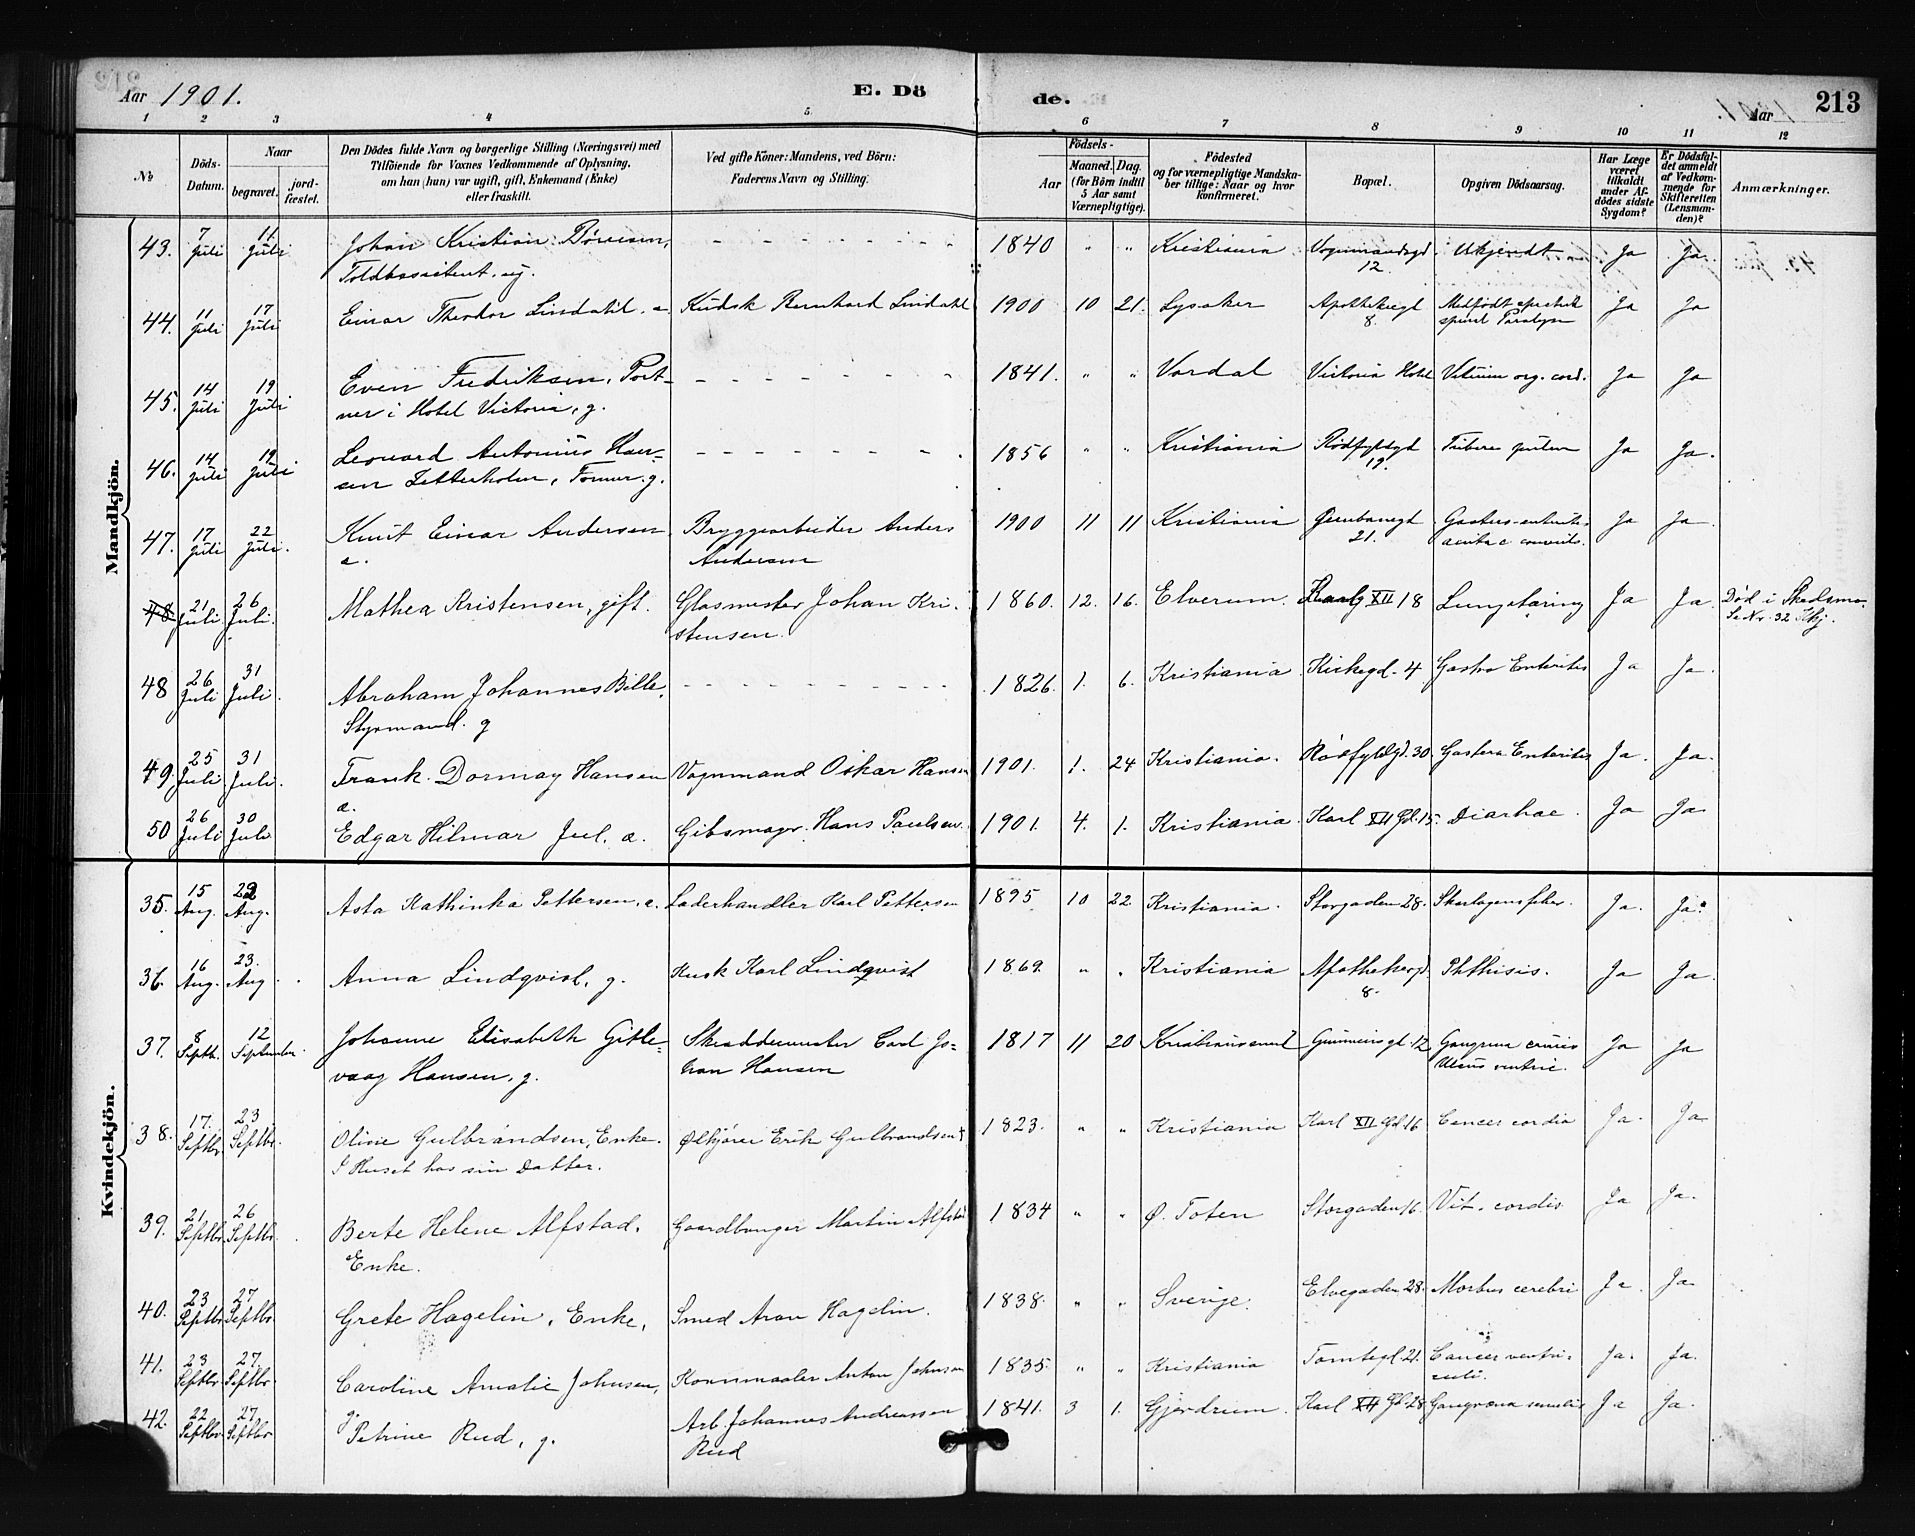 Aar 1901.
E. Dö
de.
Aar
213
1 2 3 4 5 6 7 8 9 10 11 12
No
Döds-Datum.
Naar
begravet.
jord-fæstet.
Den Dödes fulde Navn og borgerlige Stilling (Næringsvei) med
Tilföiende for Voxnes Vedkommende af Oplysning,
om han (hun) var ugift, gift, Enkemand (Enke)
eller fraskilt.
Ved gifte Koner: Mandens, ved Börn:
Faderens Navn og Stilling.
Födsels-
Aar
Maaned. Dag.
(for Börn indtil
5 Aar samt
Værnepligtige).
Födested
og for værnepligtige Mandska-
ber tillige: Naar og hvor
konfirmeret.
Bopæl.
Opgiven Dödsaarsag.
Har Læge
været
tilkaldt
under Af-
dödes sidste
Sygdom?
Er Dödsfal-
det anmeldt
af Vedkom-
mende for
Skifteretten
(Lensman-
den)?
Anmærkninger.
Mandkjön.
43. 7 Juli 11 Juli Johan Kristian 1840 " " Kristiania 12. Ukjendt Ja Ja
44. 11 Juli 17 Juli Einar Theodor Lindahl. Kudsk Bernhard Lindahl 1900 10 21. Lysaker 8. Medfödt Ja Ja
45. 14 Juli 19 Juli Even Fredriksen, Port- 1841. " " Vardal Victoria Hotel Vitium org. cord. Ja Ja
ner i Hotel Victoria, g.
46. 14 Juli 19 Juli Leonard Antonius Han- 1856 " " Kristiania 19. Ja Ja.
sen g.
47. 17 Juli 22 Juli. Knut Einar Andersen Bryggearbeider Anders 1900 11 11 Kristiania 21. Ja Ja
Andersen
48 21 Juli. 26 Juli. Mathea Kristensen, gift. Glasmester Johan Kri- 1860. 12. 16. Elverum. Karl XII 18 Lungetæring Ja Ja. Död i Skedsmo.
stensen. Se Nr. 32 Kkj.
48 26 Juli 31 Juli. Abraham Johannes Bille, 1826. 1. 6. Kristiania Kirkegd. 4 Gastro Enteritis Ja Ja.
Styrmand. g
49. 25 Juli. 31 Juli. Frank Dormay Hansen Vognmand Oskar Hansen 1901. 1. 24 Kristiania. Rödfyldgd. 30. Ja. Ja.
50 26 Juli 30 Juli Edgar Hilmar Jul. a. Gibsmager Hans Paulsen. 1901. 4. 1. Kristiania. Karl XII Gd. 15. Diarhae. Ja Ja
Kvindekjön.
35. 15 Aug. 22 Aug. Asta Kathinka Pettersen. Læderhandler Karl Pettersen 1895 10 22. Kristiania. Storgaden 28. Skarlagensfeber. Ja. Ja.
36. 16 Aug. 23. Aug. Anna Lindqvist, g. Kusk Karl Lindqvist 1869. " " Kristiania 8. Phthisis. Ja Ja.
37. 8 Septb. 12 September. Johanne Elisabeth Gitle- Skræddermester Carl Jo- 1817 11 20 Kristianssund 12. Ja Ja
vaag Hansen, g. han Hansen Ulcus ventric.
38. 17. Septbr. 23 Septbr. Olivie Gulbrandsen, Enke. Ølkjörer Erik Gulbrandsen † 1823. " " Kristiania Karl XII Gd 16 Cancer cordia Ja. Ja
I Huset hos sin Datter.
39. 21 Septbr. 26 Septbr. Berte Helene Alfstad. Gaardbruger Martin Alfstad 1834 " " Ø. Toten Storgaden 16. Vit. cordis Ja Ja.
Enke.
40. 23 Septbr. 27 Septbr. Grete Hagelin, Enke, Smed Aron Hagelin. 1838. " " Sverige. Elvegaden 28. Morbus cerebri Ja. Ja
41. 23 Septbr. 27. Septbr. Caroline Amalie Johnsen, Anton Johnsen 1835. " " Kristiania Tomtegd 21. Cancer ventri- Ja. Ja.
g. culi.
42. 22 Septbr. 27 Septbr Petrine Rud, g. Arb. Johannes Andreassen 1841. 3 1. Gjerdrum. Karl XII Gd 28 Ja Ja.
Rud